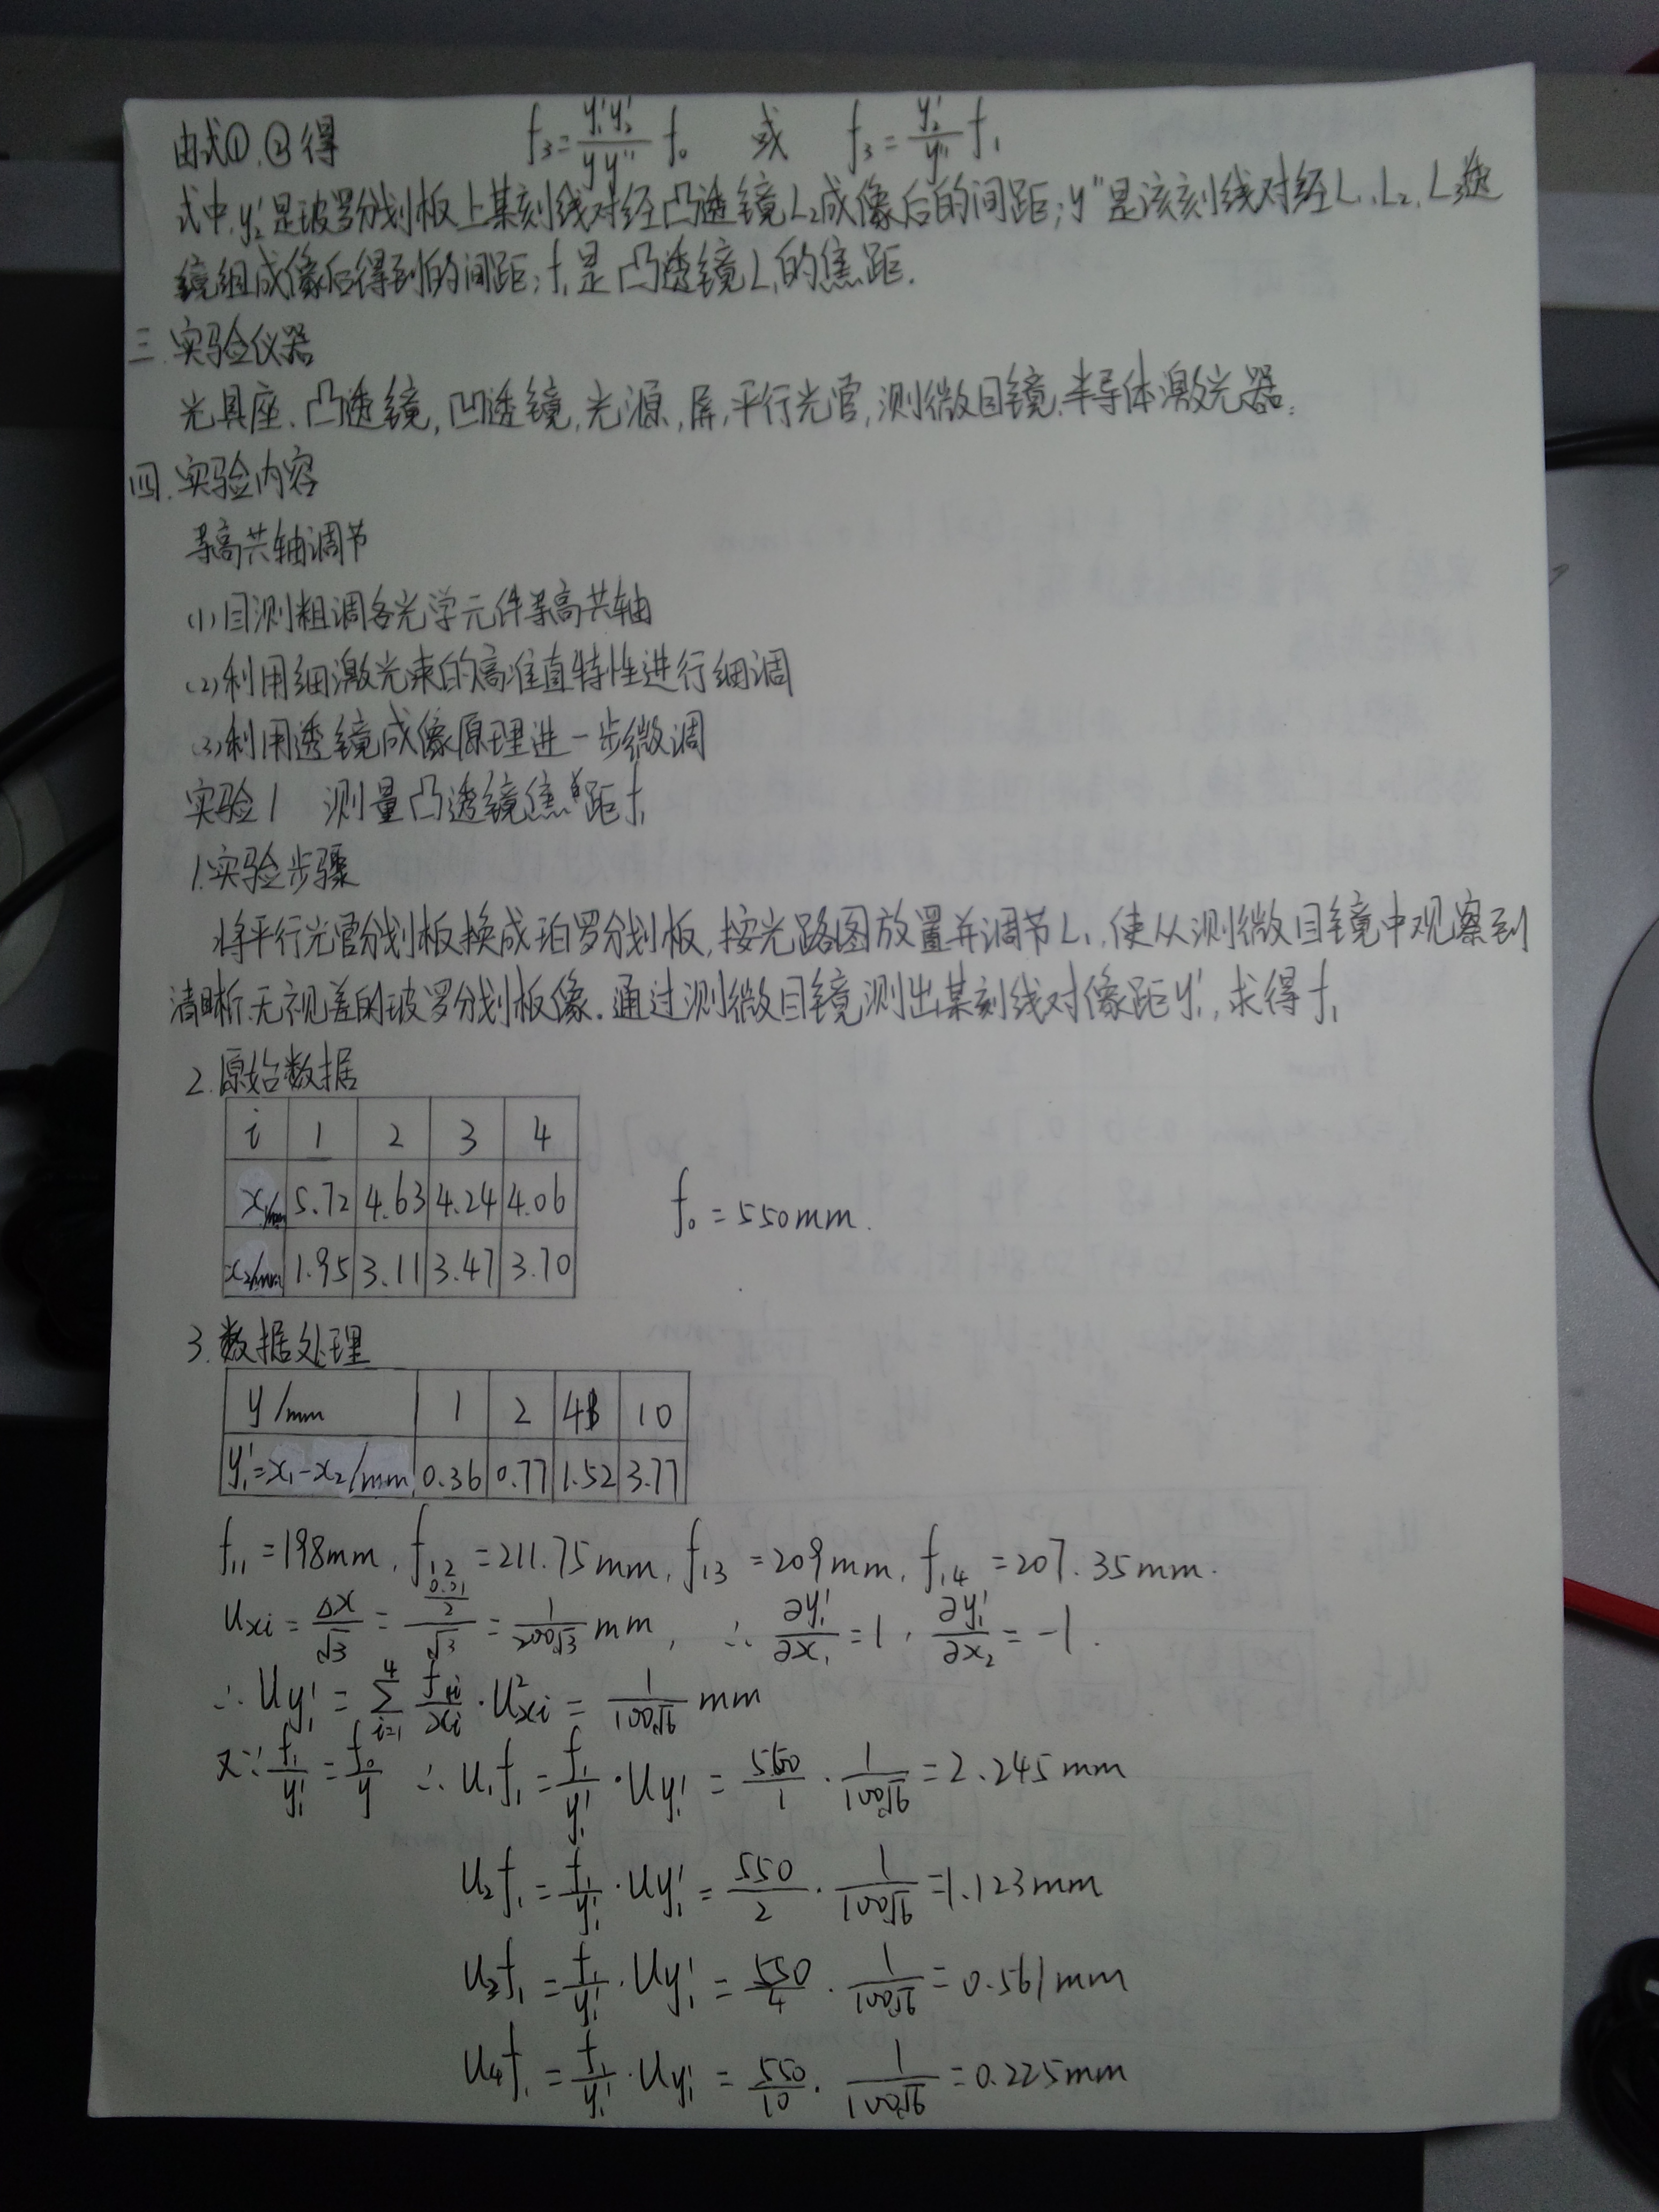 由式①、②得 f₃=y₁'y₂'/yy'' f₀ 或 f₃=y₂'/y'' f₁
式中,y₂'是玻罗分划板上某刻线对经凸透镜L₂成像后的间距;y''是该刻线对经L₁、L₂、L₃透
镜组成像后得到的间距;f₁是凸透镜L₁的焦距.
三.实验仪器
光具座、凸透镜,凹透镜,光源,屏,平行光管,测微目镜,半导体激光器.
四.实验内容
等高共轴调节
(1)目测粗调各光学元件等高共轴
(2)利用细激光束的高准直特性进行细调
(3)利用透镜成像原理进一步微调
实验1 测量凸透镜焦距f₁
1.实验步骤
将平行光管分划板换成珀罗分划板,按光路图放置并调节L₁,使从测微目镜中观察到
清晰、无视差的玻罗分划板像.通过测微目镜测出某刻线对像距y₁',求得f₁
2.原始数据
i 1 2 3 4
x₁/mm 5.72 4.63 4.24 4.06
f₀=550mm.
x₂/mm 1.95 3.11 3.47 3.70
3.数据处理
y/mm 1 2 4 10
y₁'=x₁-x₂/mm 0.36 0.77 1.52 3.77
f₁₁=198mm,f₁₂=211.75mm,f₁₃=209mm,f₁₄=207.35mm.
Uxi=Δx/√3=(0.01/2)/√3=1/200√3 mm, ∴ ∂y₁'/∂x₁=1,∂y₁'/∂x₂=-1.
∴Uy₁'=∑(i=1→4) f₁i/xi·U²xi=1/100√6 mm
又∵f₁/y₁'=f₀/y ∴U₁f₁=f₁/y₁'·Uy₁'=550/1·1/100√6=2.245mm
U₂f₁=f₁/y₁'·Uy₁'=550/2·1/100√6=1.123mm
U₃f₁=f₁/y₁'·Uy₁'=550/4·1/100√6=0.561mm
U₄f₁=f₁/y₁'·Uy₁'=550/10·1/100√6=0.225mm